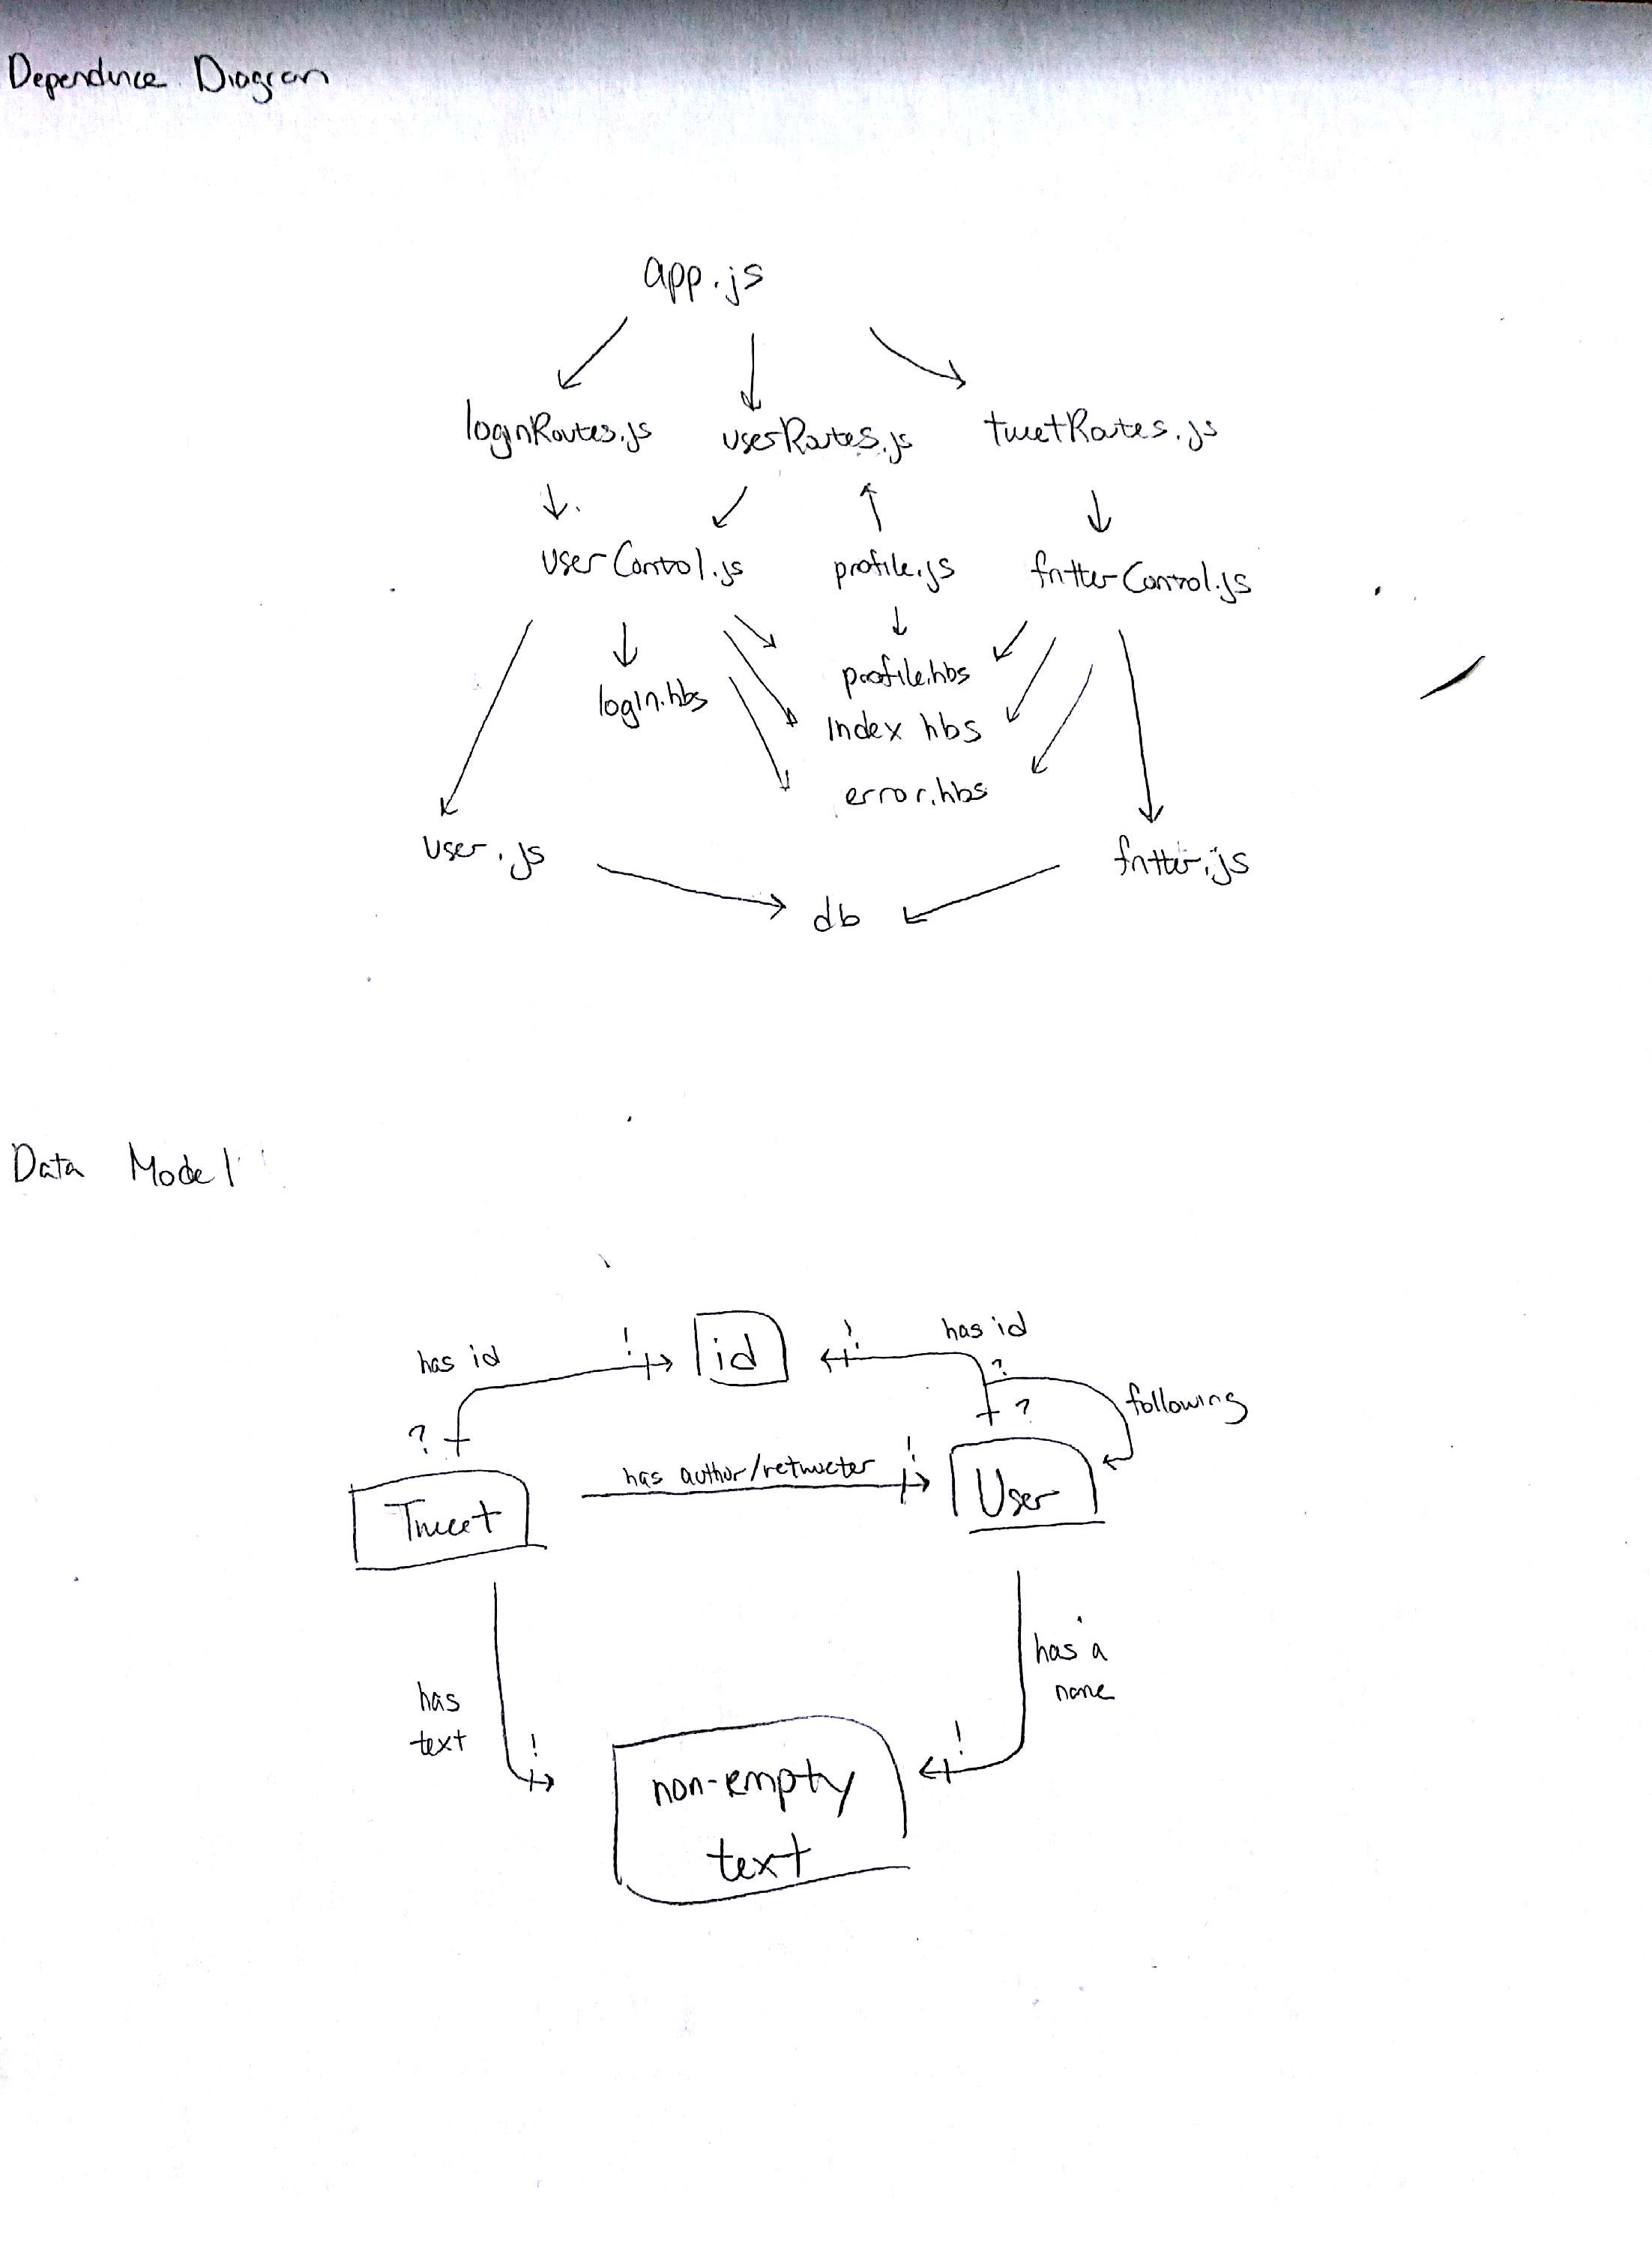 Dependence Diagram
app.js
loginRoutes.js userRoutes.js tweetRoutes.js
userControl.js profile.js fritterControl.js
profile.hbs
login.hbs
index hbs
error.hbs
user.js fritter.js
db
Data Model
has id ! id ! has id
?
? ? following
has author/retweeter !
Tweet User
has a
name
has
text ! !
non-empty
text